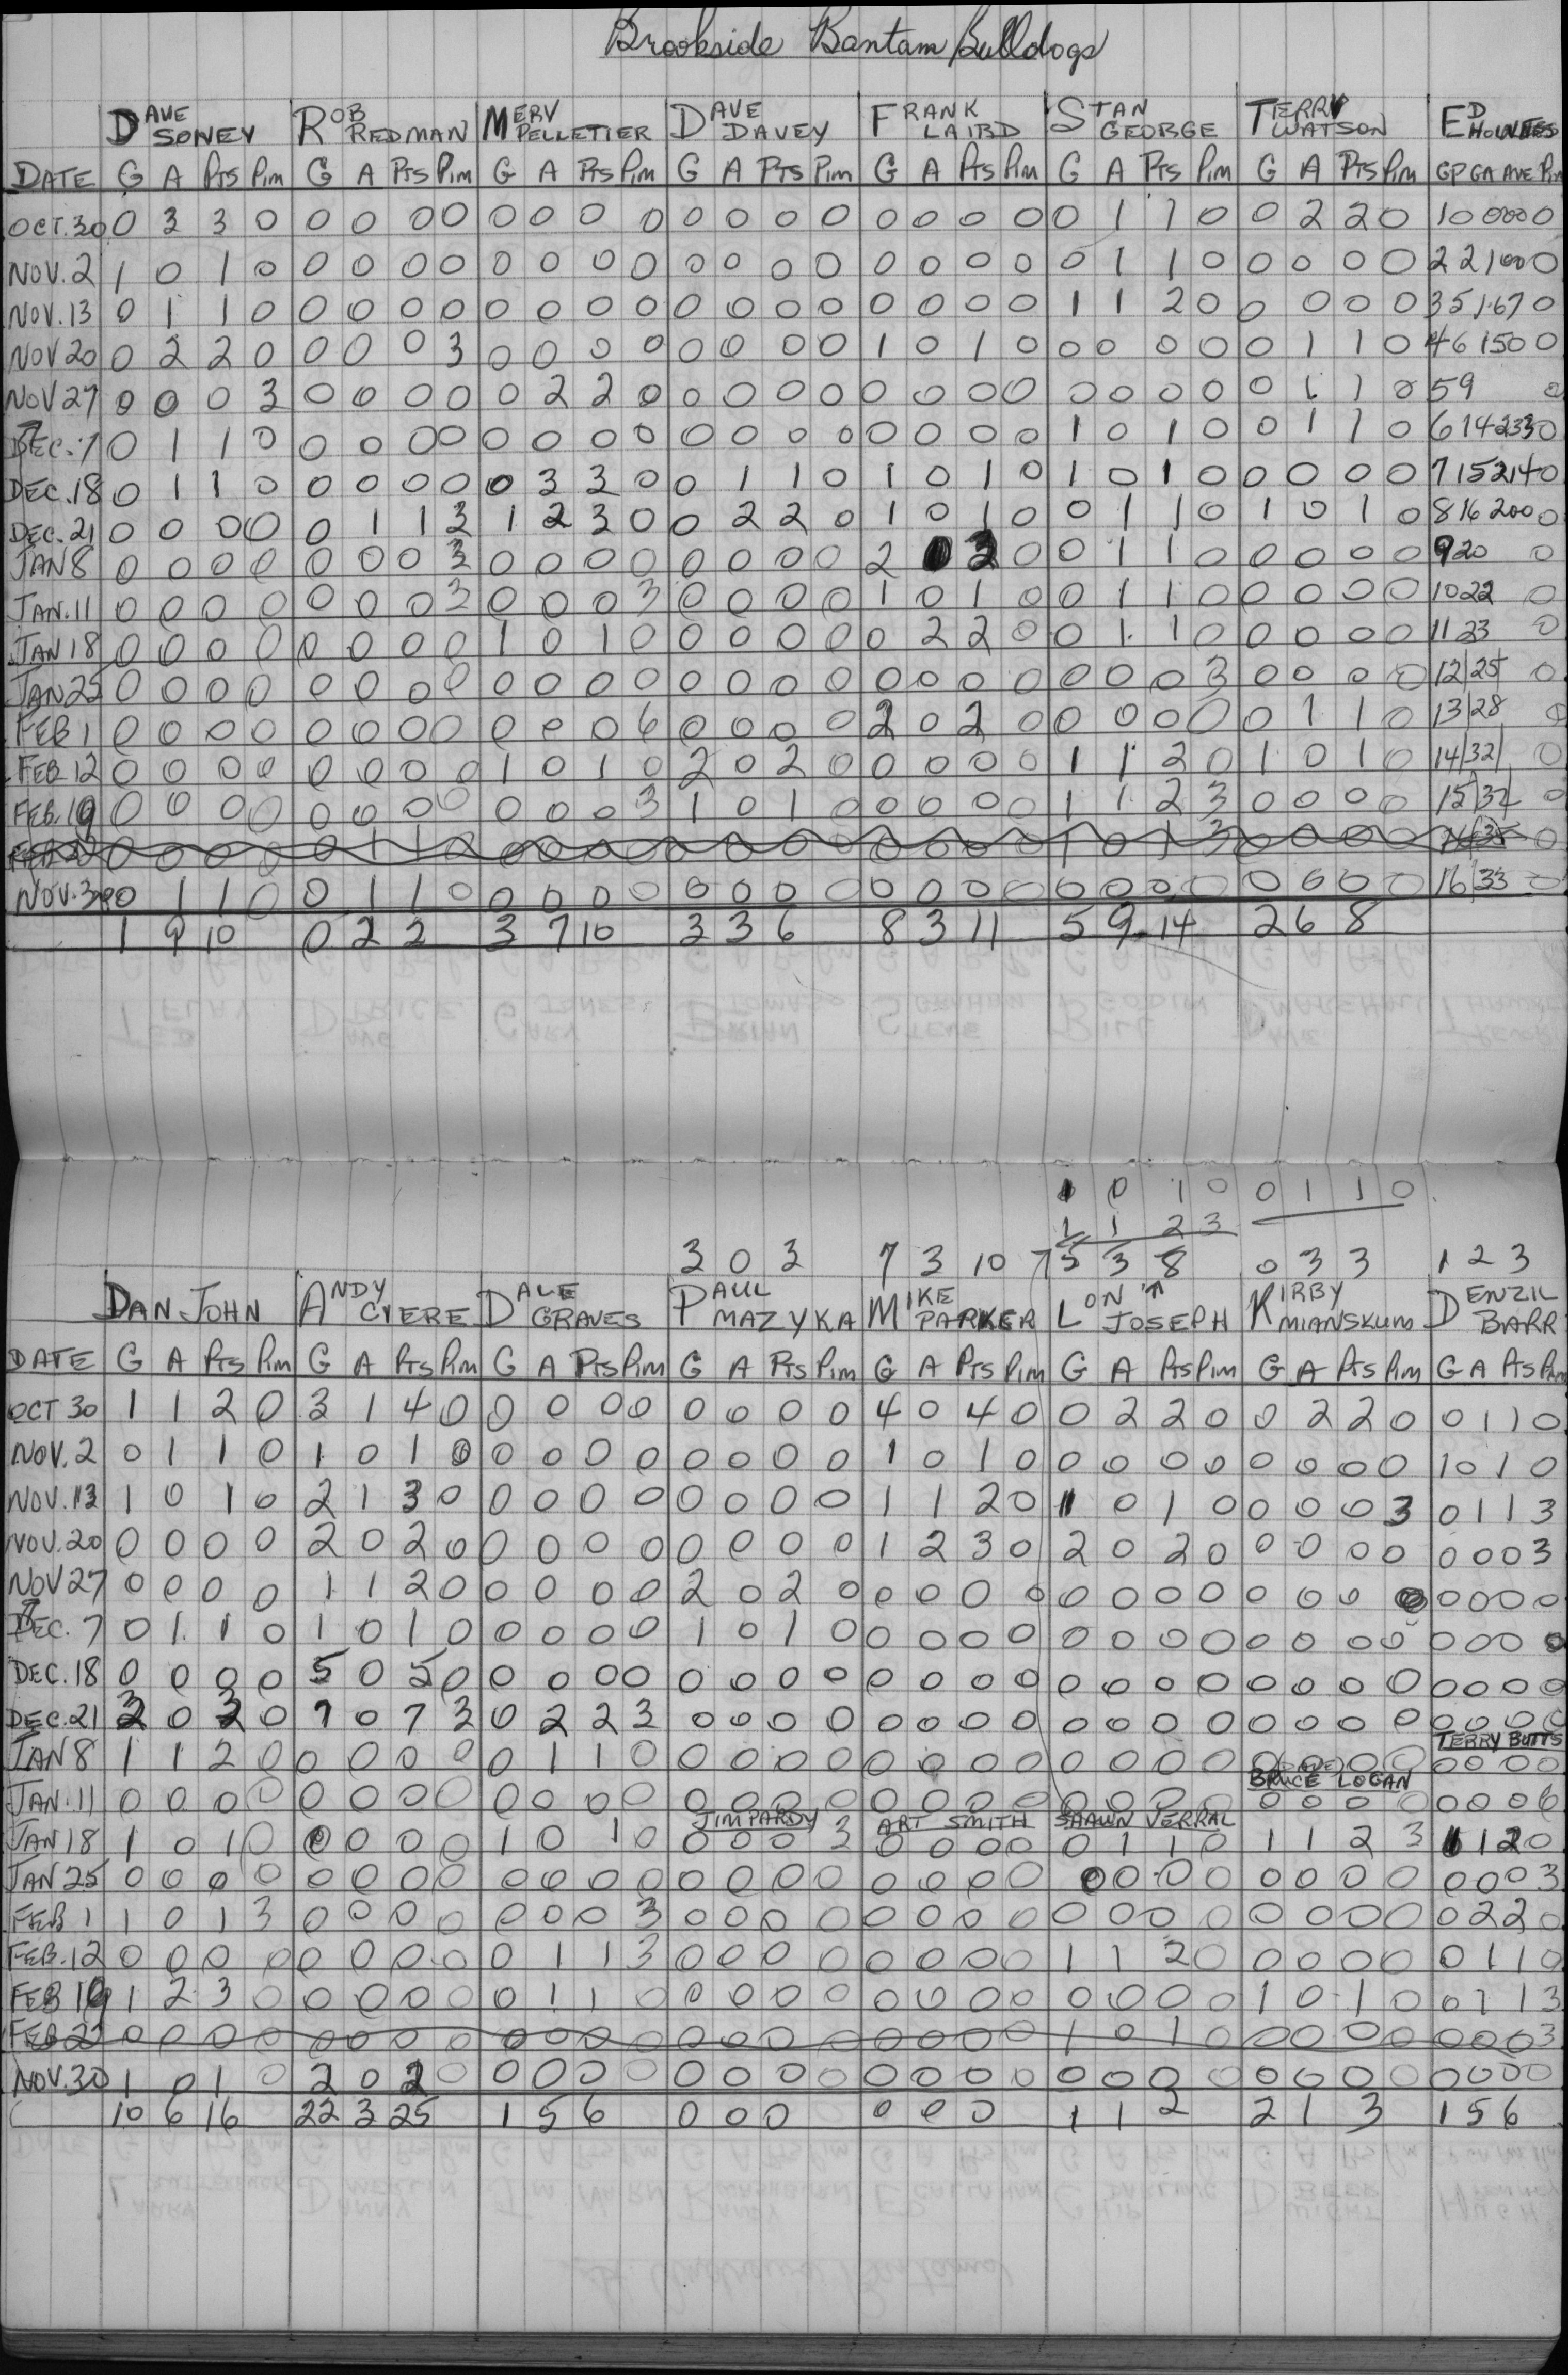 Brookside Bantam Bulldogs
DAVE SONEY ROB REDMAN MERV PELLETIER DAVE DAVEY FRANK LAIRD STAN GEORGE TERRY WATSON ED
DATE G A Pts Pim G A Pts Pim G A Pts Pim G A Pts Pim G A Pts Pim G A Pts Pim G A Pts Pim GP GA AVE Pim
OCT.30 0 3 3 0 0 0 0 0 0 0 0 0 0 0 0 0 0 0 0 0 0 1 1 0 0 2 2 0 1 0 000 0
NOV.2 1 0 1 0 0 0 0 0 0 0 0 0 0 0 0 0 0 0 0 0 0 1 1 0 0 0 0 0 2 2 1000
NOV.13 0 1 1 0 0 0 0 0 0 0 0 0 0 0 0 0 0 0 0 0 1 1 2 0 0 0 0 0 3 5 1.67 0
NOV 20 0 2 2 0 0 0 0 3 0 0 0 0 0 0 0 0 1 0 1 0 0 0 0 0 0 1 1 0 4 6 150 0
NOV 27 0 0 0 3 0 0 0 0 0 2 2 0 0 0 0 0 0 0 0 0 0 0 0 0 0 1 1 0 5 9 0
DEC.7 0 1 1 0 0 0 0 0 0 0 0 0 0 0 0 0 0 0 0 0 1 0 1 0 0 1 1 0 6 14 233 0
DEC.18 0 1 1 0 0 0 0 0 0 3 3 0 0 1 1 0 1 0 1 0 1 0 1 0 0 0 0 0 7 15 214 0
DEC.21 0 0 0 0 0 1 1 3 1 2 3 0 0 2 2 0 1 0 1 0 0 1 1 0 1 0 1 0 8 16 200 0
JAN 8 0 0 0 0 0 0 0 3 0 0 0 0 0 0 0 0 2 3 0 0 1 1 0 0 0 0 0 9 20 0
JAN.11 0 0 0 0 0 0 0 3 0 0 0 3 0 0 0 0 1 0 1 0 0 1 1 0 0 0 0 0 10 22 0
JAN 18 0 0 0 0 0 0 0 0 1 0 1 0 0 0 0 0 0 2 2 0 0 1 1 0 0 0 0 0 11 23 0
JAN 25 0 0 0 0 0 0 0 0 0 0 0 0 0 0 0 0 0 0 0 0 0 0 0 3 0 0 0 0 12 25 0
FEB 1 0 0 0 0 0 0 0 0 0 0 0 6 0 0 0 0 2 0 2 0 0 0 0 0 0 1 1 0 13 28 0
FEB 12 0 0 0 0 0 0 0 0 1 0 1 0 2 0 2 0 0 0 0 0 1 1 2 0 1 0 1 0 14 32 0
FEB.19 0 0 0 0 0 0 0 0 0 0 0 3 1 0 1 0 0 0 0 0 1 1 2 3 0 0 0 0 15 32 0
0 0 0 0 0 1 1 0 0 0 0 0 0 0 0 0 0 0 0 0 1 0 1 3 0 0 0 0
NOV.30 0 1 1 0 0 1 1 0 0 0 0 0 0 0 0 0 0 0 0 0 0 0 0 0 0 0 0 0 16 33 0
1 9 10 0 2 2 3 7 10 3 3 6 8 3 11 5 9 14 2 6 8
1 0 1 0 0 1 1 0
1 1 2 3
3 0 3 7 3 10 5 3 8 0 3 3 1 2 3
DAN JOHN ANDY CYERE DALE GRAVES PAUL MAZYKA MIKE PARKER LON JOSEPH KIRBY MIANSKUM DENZIL BARR
DATE G A Pts Pim G A Pts Pim G A Pts Pim G A Pts Pim G A Pts Pim G A Pts Pim G A Pts Pim G A Pts Pim
OCT 30 1 1 2 0 3 1 4 0 0 0 0 0 0 0 0 0 4 0 4 0 0 2 2 0 0 2 2 0 0 1 1 0
NOV.2 0 1 1 0 1 0 1 0 0 0 0 0 0 0 0 0 1 0 1 0 0 0 0 0 0 0 0 0 1 0 1 0
NOV.13 1 0 1 0 2 1 3 0 0 0 0 0 0 0 0 0 1 1 2 0 1 0 1 0 0 0 0 3 0 1 1 3
NOV.20 0 0 0 0 2 0 2 0 0 0 0 0 0 0 0 0 1 2 3 0 2 0 2 0 0 0 0 0 0 0 0 3
NOV 27 0 0 0 0 1 1 2 0 0 0 0 0 2 0 2 0 0 0 0 0 0 0 0 0 0 0 0 0 0 0 0 0
DEC.7 0 1 1 0 1 0 1 0 0 0 0 0 1 0 1 0 0 0 0 0 0 0 0 0 0 0 0 0 0 0 0 0
DEC.18 0 0 0 0 5 0 5 0 0 0 0 0 0 0 0 0 0 0 0 0 0 0 0 0 0 0 0 0 0 0 0 0
DEC.21 3 0 3 0 7 0 7 3 0 2 2 3 0 0 0 0 0 0 0 0 0 0 0 0 0 0 0 0 0 0 0 0
TERRY BUTTS
JAN 8 1 1 2 0 0 0 0 0 0 1 1 0 0 0 0 0 0 0 0 0 0 0 0 0 0 0 0 0 0 0 0
BRUCE LOGAN
JAN.11 0 0 0 0 0 0 0 0 0 0 0 0 0 0 0 0 0 0 0 0 0 0 0 0 0 0 0 0 0 0 0 6
JIM PARDY ART SMITH SHAWN VERRAL
JAN 18 1 0 1 0 0 0 0 0 1 0 1 0 0 0 0 3 0 0 0 0 0 1 1 0 1 1 2 3 1 1 2 0
JAN 25 0 0 0 0 0 0 0 0 0 0 0 0 0 0 0 0 0 0 0 0 0 0 0 0 0 0 0 0 0 0 0 3
FEB 1 1 0 1 3 0 0 0 0 0 0 0 3 0 0 0 0 0 0 0 0 0 0 0 0 0 0 0 0 0 2 2 0
FEB.12 0 0 0 0 0 0 0 0 0 1 1 3 0 0 0 0 0 0 0 0 1 1 2 0 0 0 0 0 0 1 1 0
FEB 19 1 2 3 0 0 0 0 0 0 1 1 0 0 0 0 0 0 0 0 0 0 0 0 0 1 0 1 0 0 1 1 3
FEB 22 0 0 0 0 0 0 0 0 0 0 0 0 0 0 0 0 0 0 0 0 1 0 1 0 0 0 0 0 0 0 0 3
NOV.30 1 0 1 0 2 0 2 0 0 0 0 0 0 0 0 0 0 0 0 0 0 0 0 0 0 0 0 0 0 0 0 0
10 6 16 22 3 25 1 5 6 0 0 0 0 0 0 1 1 2 2 1 3 1 5 6